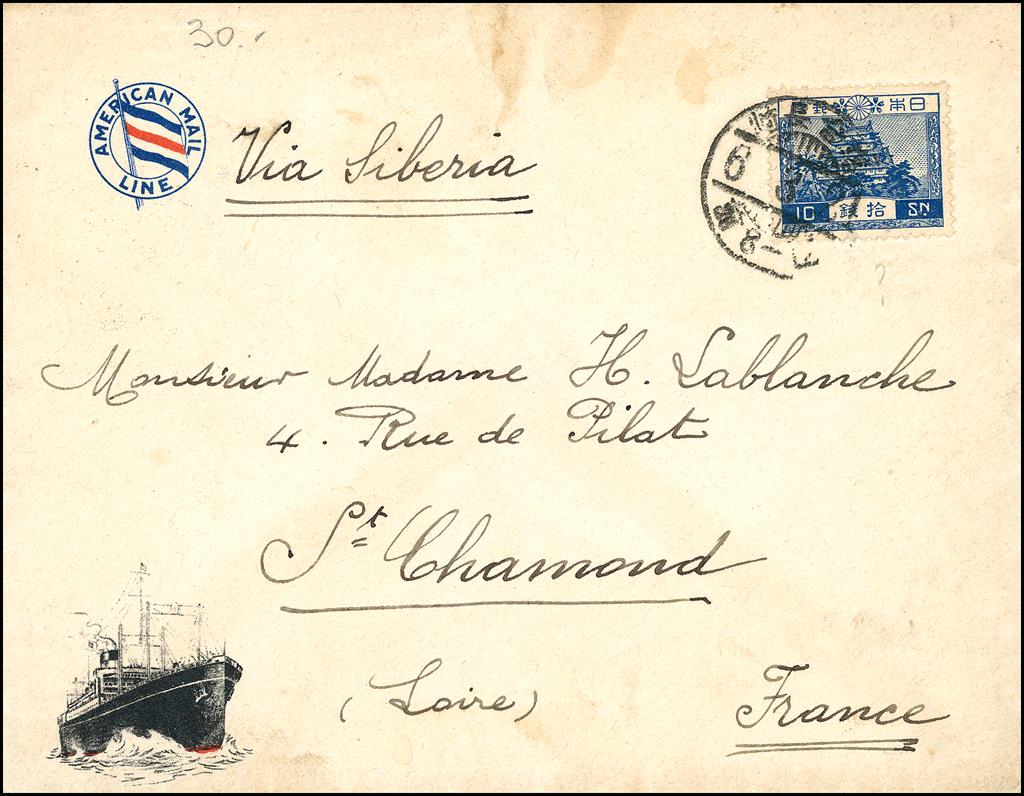 30.-
AMERICAN MAIL
LINE
Via Siberia
日本郵便
10 銭拾 SN.
Monsieur Madame H. Lablanche
4. Rue de Pilat
St Chamond
(Loire)
France
?